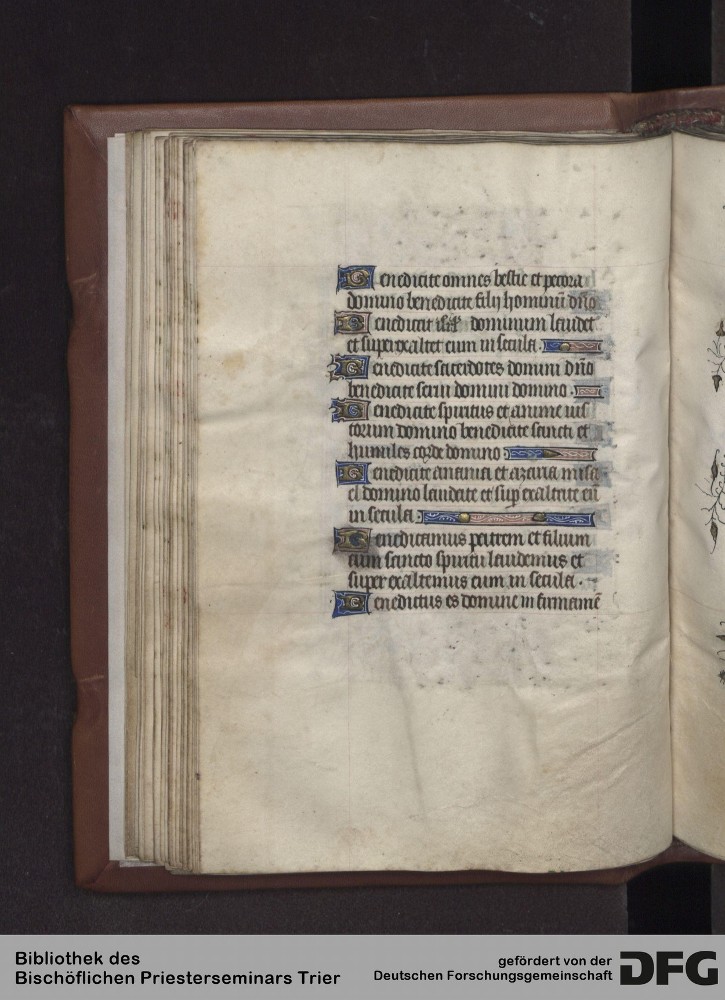 Benedicite omnes bestie et pecora
domino benedicite filij hominū dño
Benedicat isr̃l dominum laudet
et superexaltet eum in secula.
Benedicite sacerdotes domini dño
benedicite serui domini domino.
Benedicite spiritus et anime ius
torum domino benedicite sancti et
humiles corde domino:
Benedicite anania et azaria misa
el domino laudate et sup̃exaltate eū
in secula:
Benedicamus patrem et filium
cum sancto spiritu laudemus et
super exaltemus eum in secula.
Benedictus es domine in firmamē
Bibliothek des
Bischöflichen Priesterseminars Trier
gefördert von der
Deutschen Forschungsgemeinschaft
DFG